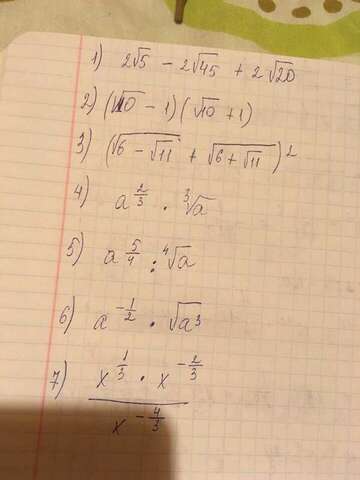 1) 2√5 − 2√45 + 2√20
2) (√10 − 1)(√10 + 1)
3) (√(6 − √11) + √(6 + √11))²
4) a^(2/3) · ³√a
5) a^(5/4) : ⁴√a
6) a^(−1/2) · √(a³)
7) (x^(1/3) · x^(−2/3)) / x^(−4/3)